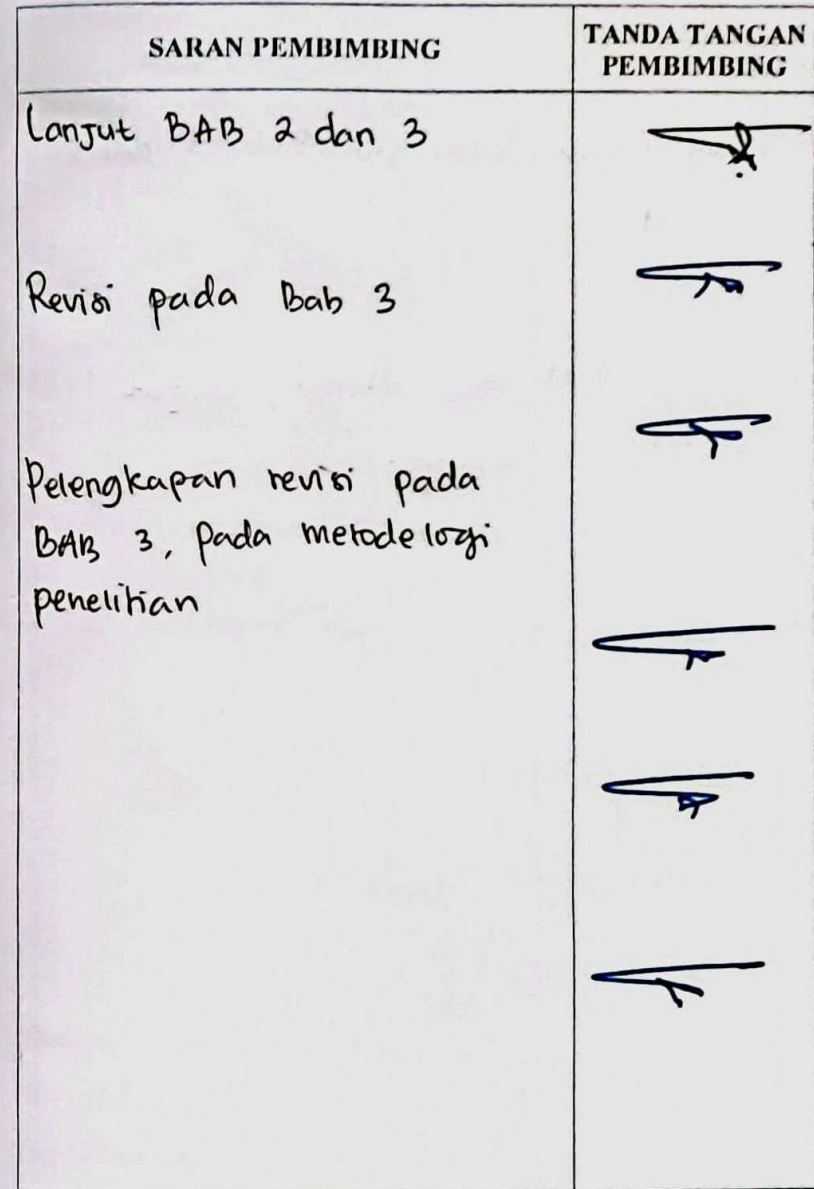 SARAN PEMBIMBING
TANDA TANGAN
PEMBIMBING
Lanjut BAB 2 dan 3
Revisi pada Bab 3
Pelengkapan revisi pada
BAB 3, Pada metodelogi
penelitian